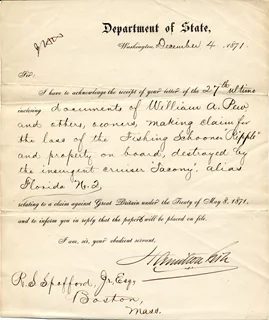 Department of State,
Washington, December 4 1871.
Sir:
I have to acknowledge the receipt of your letter of the 27th ultimo
inclosing documents of William A. Pew
and others, owners, making claim for
the loss of the Fishing Schooner "Ripple"
and property on board, destroyed by
the insurgent cruiser Tacony, alias
Florida No. 2
relating to a claim against Great Britain under the Treaty of May 8, 1871,
and to inform you in reply that the papers will be placed on file.
I am, sir, your obedient servant,
Hamilton Fish
R. S. Spofford, Jr. Esq.,
Boston,
Mass.